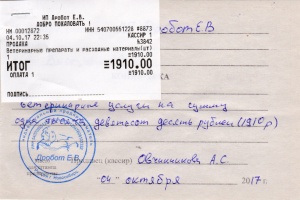 ИП Дробот Е.В.
ДОБРО ПОЖАЛОВАТЬ !
ИНН 540700551228 #6873
КАССИР 1
04.10.17 22:35
ПРОДАЖА
#3842
Ветеринарные препараты и расходные материалы(шт)
1 ≡1910.00
ИТОГ ≡1910.00
ОПЛАТА 1 ≡1910.00
подпись
Дробот Е.В
ветеринарные услуги на сумму
одна тысяча девятьсот десять рублей (1910 р)
Дробот Е.В.
(кассир) Овчинникова А.С
"04" октября 2017г.